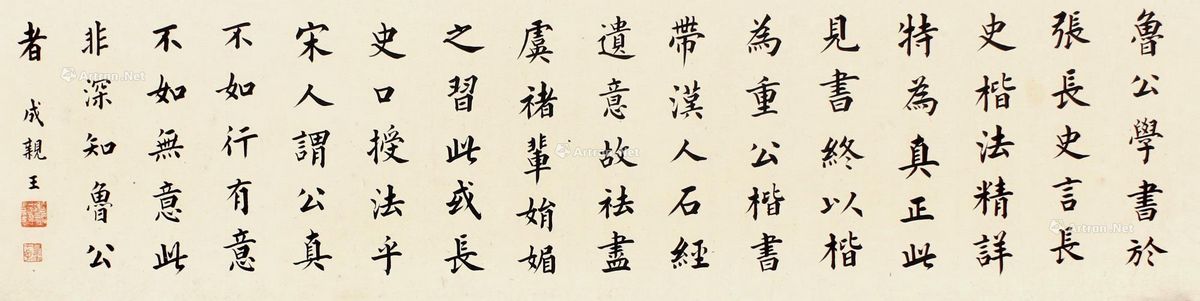 魯公學書於
張長史言長
史楷法精詳
特為真正此
見書終以楷
為重公楷書
帶漢人石經
遺意故祛盡
虞褚輩媚媚
之習此或長
史口授法乎
宋人謂公真
不如行有意
不如無意此
非深知魯公
者
成親王
Artron.Net
Artron.Net
Artron.Net
Artron.Net